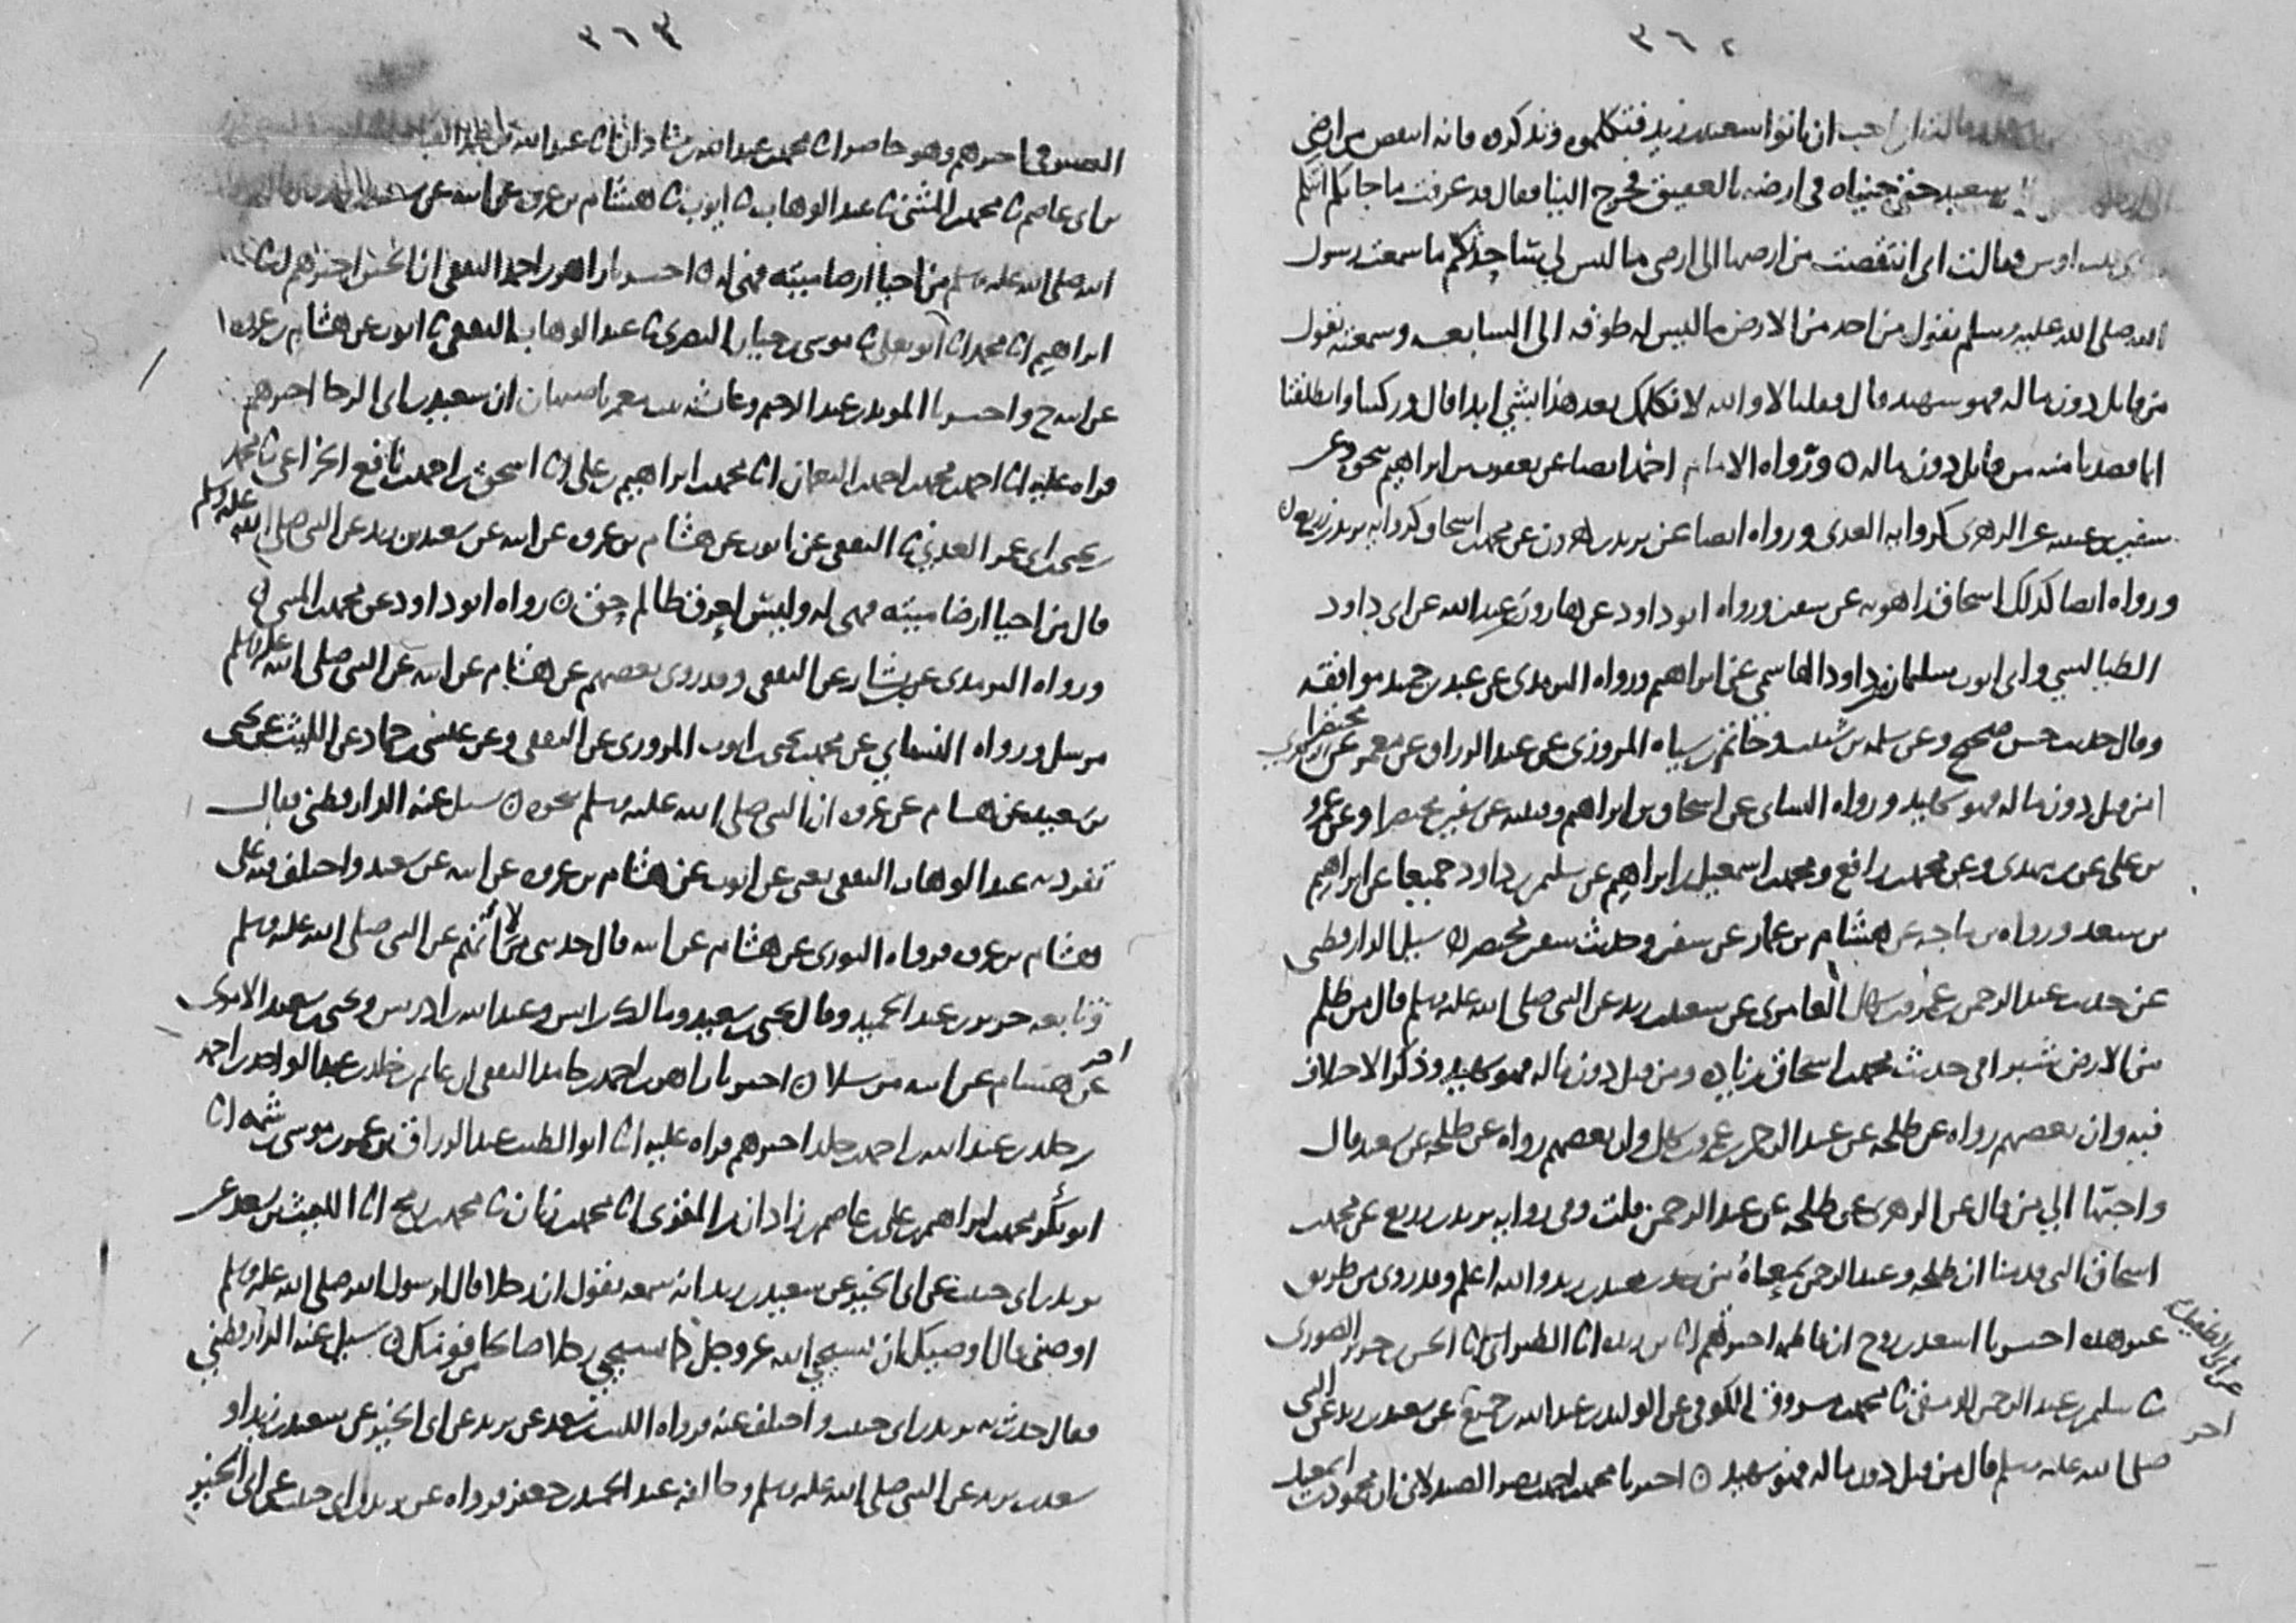 ٣٦٢
احب ان ياتوا سعيد بن زيد فتكلموه وتذكروه فانه انتقص من ارضي
سعيد حتى جيناه في ارضه بالعقيق فخرج الينا فقال قد عرفت ما جا بكم اتتكم
اوس فقالت اني انتقصت من ارضها الى ارضي ما ليس لي ساحدثكم ما سمعت رسول
الله صلى الله عليه وسلم يقول من اخذ من الارض ما ليس له طوقه الى السابعه وسمعته يقول
من قاتل دون ماله فهو شهيد قال فقلنا لا والله لا نكلمك بعد هذا بشي ابدا قال وركبنا وانطلقنا
من قاتل دون ماله ورواه الامام احمد ايضا عن يعقوب بن ابراهيم وعن
سفيان بن عيينه عن الزهري كروايه العدني ورواه ايضا عن يزيد بن هارون عن محمد بن اسحاق كروايه يزيد بن زريع
ورواه ايضا كذلك اسحاق بن راهويه عن سفين ورواه ابو داود عن هارون بن عبد الله عن ابي داود
الطيالسي وابي ايوب سليمان بن داود الهاشمي عن ابراهيم ورواه الترمذي عن عبد بن حميد موافقه
وقال حديث حسن صحيح وعن سلمه بن شبيب وحاتم بن سياه المروزي عن عبد الرزاق عن معمر عن الزهري مختصرا
من قتل دون ماله فهو شهيد ورواه النساي عن اسحاق بن ابراهيم وقتيبه عن سفين مختصرا وعن عمرو
بن علي عن بن مهدي وعن محمد بن رافع ومحمد بن اسمعيل بن ابراهيم عن سليمن بن داود جميعا عن ابراهيم
بن سعد ورواه بن ماجه عن هشام بن عمار عن سفين وحديث سفين مختصر سيل الدارقطني
عن حديث عبد الرحمن بن عمرو بن سهل العامري عن سعيد بن زيد عن النبي صلى الله عليه وسلم قال من ظلم
من الارض شبرا في حديث محمد بن اسحاق زياده ومن قتل دون ماله فهو شهيد وذكر الاختلاف
فيه وان بعضهم رواه عن طلحه عن عبد الرحمن بن عمرو بن سهل وان بعضهم رواه عن طلحه عن سعيد قال
واحبها الي من قال عن الزهري عن طلحه عن عبد الرحمن قلت وفي روايه يزيد بن زريع عن محمد بن
اسحاق التي قدمنا ان طلحه وعبد الرحمن سمعاه من سعيد بن زيد والله اعلم وقد روي من طريق
غير هذه اخبرنا اسعد بن روح ان فاطمه اخبرتهم ابنا بن ريذه ابنا الطبراني ثنا الحسن بن جرير الصوري
ثنا سليمن بن عبد الرحمن الدمشقي ثنا محمد بن مسروق الكوفي عن الوليد بن عبد الله بن جميع عن سعيد بن زيد عن النبي
عن ابي الطفيل
اخر
صلى الله عليه وسلم قال من قتل دون ماله فهو شهيد اخبرنا محمد بن احمد بن نصر الصيدلاني ان محمود بن اسمعيل
٣٦٣
الصيرفي اخبرهم وهو حاضر ابنا محمد بن عبد الله بن شاذان ابنا عبد الله بن محمد القباب
بن ابي عاصم ثنا محمد بن المثنى ثنا عبد الوهاب ثنا ايوب ثنا هشام بن عروه عن ابيه عن سعيد
الله صلى الله عليه وسلم من احيا ارضا ميته فهي له اخبرنا زاهر بن احمد الثقفي ان الحسين اخبرهم ابنا
ابراهيم ابنا محمد ابنا ابو يعلى ثنا موسى بن حيان البصري ثنا عبد الوهاب الثقفي ثنا ايوب عن هشام بن عروه
عن ابيه ح واخبرنا المويد بن عبد الرحيم وعايشه بنت معمر باصبهان ان سعيد بن ابي الرجا اخبرهم
قراه عليه ابنا احمد بن محمد بن احمد بن النعمان ابنا محمد بن ابراهيم بن علي ابنا اسحق بن احمد بن نافع الخزاعي ثنا محمد
بن يحيى بن ابي عمر العدني ثنا الثقفي عن ايوب عن هشام بن عروه عن ابيه عن سعيد بن زيد عن النبي صلى الله عليه وسلم
قال من احيا ارضا ميته فهي له وليس لعرق ظالم حق رواه ابو داود عن محمد بن المثنى
ورواه الترمذي عن بشار عن الثقفي وقد روى بعضهم عن هشام عن ابيه عن النبي صلى الله عليه وسلم
مرسل ورواه النساي عن محمد بن يحيى بن ايوب المروزي عن الثقفي وعن عيسى بن حماد عن الليث عن يحيى
بن سعيد عن هشام عن عروه ان النبي صلى الله عليه وسلم نحوه سيل عنه الدارقطني فقال
تفرد به عبد الوهاب الثقفي يعني عن ايوب عن هشام بن عروه عن ابيه عن سعيد واختلف فيه على
هشام بن عروه فرواه الثوري عن هشام عن ابيه قال حدثني من لا اتهم عن النبي صلى الله عليه وسلم
وتابعه جرير بن عبد الحميد وقال يحيى بن سعيد ومالك بن انس وعبد الله بن ادريس ويحيى بن سعيد الاموي
عن هشام عن ابيه مرسلا اخبرنا زاهر بن احمد بن حامد الثقفي ان غانم بن خالد بن عبد الواحد بن احمد
اخر
بن خالد بن عبد الله بن احمد بن خالد اخبرهم قراه عليه ابنا ابو الطيب عبد الرزاق بن عمر بن موسى بن شمه ابنا
ابو بكر محمد بن ابراهيم بن علي بن عاصم بن زاذان بن المقري ابنا محمد بن زبان ثنا محمد بن رمح ابنا الليث بن سعد عن
يزيد بن ابي حبيب عن ابي الخير عن سعيد بن يزيد انه سمعه يقول ان رجلا قال لرسول الله صلى الله عليه وسلم
اوصني قال اوصيك ان تستحيي الله عز وجل كما تستحيي رجلا صالحا من قومك سيل عنه الدارقطني
فقال حدث به يزيد بن ابي حبيب واختلف عنه فرواه الليث بن سعد عن يزيد عن ابي الخير عن سعيد بن زيد او
سعيد بن يزيد عن النبي صلى الله عليه وسلم وخالفه عبد الحميد بن جعفر فرواه عن يزيد بن ابي حبيب عن ابي الخير